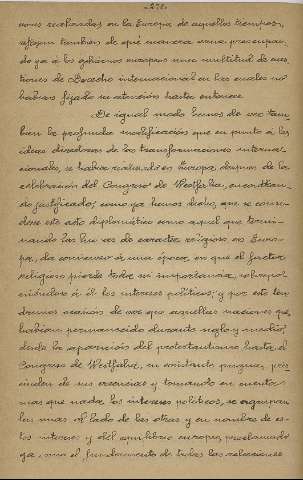 -278-
nomos realizadas en la Europa de aquellos tiempos,
reflejan tambien de qué manera viene preocupan-
do ya á los gobiernos europeos una multitud de cues-
tiones de Derecho internacional en las cuales no
habían fijado su atención hasta entonces.
De igual modo hemos de ver tam-
bien la profunda modificación que en punto á las
ideas directoras de las transformaciones interna-
cionales, se había realizado en Europa, después de la
celebración del Congreso de Westfalia, encontran-
do justificado, como ya hemos dicho, que se consi-
dere este acto diplomático como aquel que termi-
nando las luchas de caracter religioso en Euro-
pa, da comienzo á una época, en que el factor
religioso pierde toda su importancia, sobrepo-
niéndose á él los intereses políticos; y por esto ten-
dremos ocasión de ver que aquellas naciones que
habían permanecido durante siglo y medio,
desde la aparición del protestantismo hasta el
Congreso de Westfalia, en constante pugna, pres-
cinden de sus creencias y tomando en cuenta
mas que nada los intereses políticos, se agrupan
las unas al lado de las otras y en nombre de es-
tos intereses y del equilibrio europeo, proclamado
ya como el fundamento de todas las relaciones